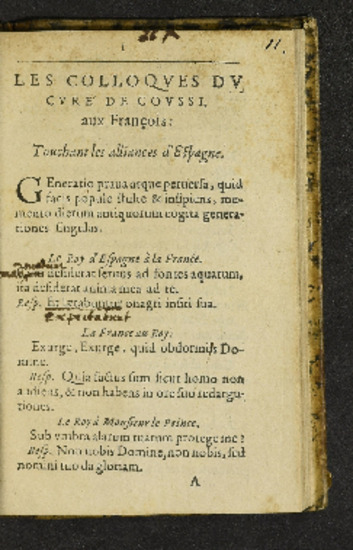 11.
LES COLLOQVES DV
CVRE DE COVSSI,
aux François:
Touchant les alliances d'Espagne.
GEneratio praua atque peruersa, quid
facis popule stulte & insipiens, me-
mento dierum antiquorum cogita genera-
tiones singulas.
Le Roy d'Espagne à la France.
desiderat seruus ad fontes aquarum,
ita desiderat anima mea ad te.
Resp. onagri in siti sua.
Expectabunt
La France au Roy.
Exurge, Exurge, quid obdormis Do-
mine.
Resp. Quia factus sum sicut homo non
audiens, & non habens in ore suo redargu-
tiones.
Le Roy à Monsieur le Prince.
Sub vmbra alarum tuarum protege me?
Resp. Non nobis Domine, non nobis, sed
nomini tuo da gloriam.
A